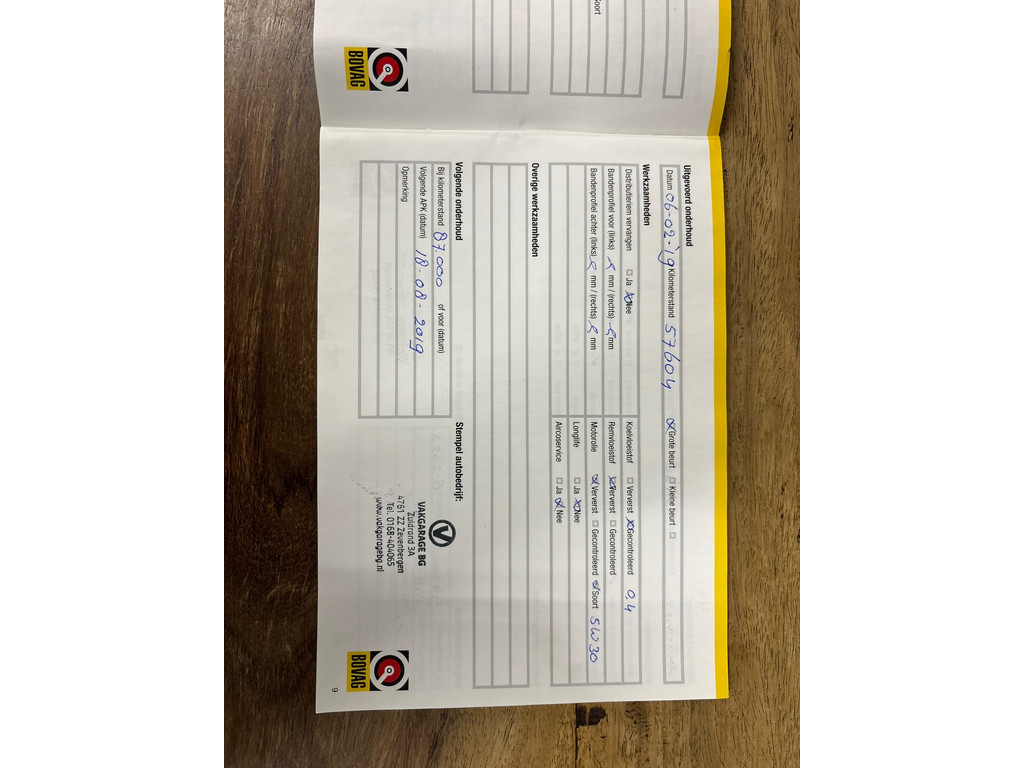 Soort
BOVAG
Uitgevoerd onderhoud
Datum 06-02-'19 Kilometerstand 57604 Grote beurt Kleine beurt
Werkzaamheden
Distributieriem vervangen Ja Nee Koelvloeistof Ververst Gecontroleerd 0,4
Bandenprofiel voor (links) mm / (rechts) mm Remvloeistof Ververst Gecontroleerd
Bandenprofiel achter (links) mm / (rechts) mm Motorolie Ververst Gecontroleerd Soort 5W30
Longlife Ja Nee
Aircoservice Ja Nee
Overige werkzaamheden
Volgende onderhoud
Bij kilometerstand 87.000 of voor (datum)
Volgende APK (datum) 18-08-2019
Opmerking
Stempel autobedrijf:
VAKGARAGE BG
Zuidrand 3A
4761 ZZ Zevenbergen
Tel. 0168-404065
www.vakgaragebg.nl
BOVAG
9